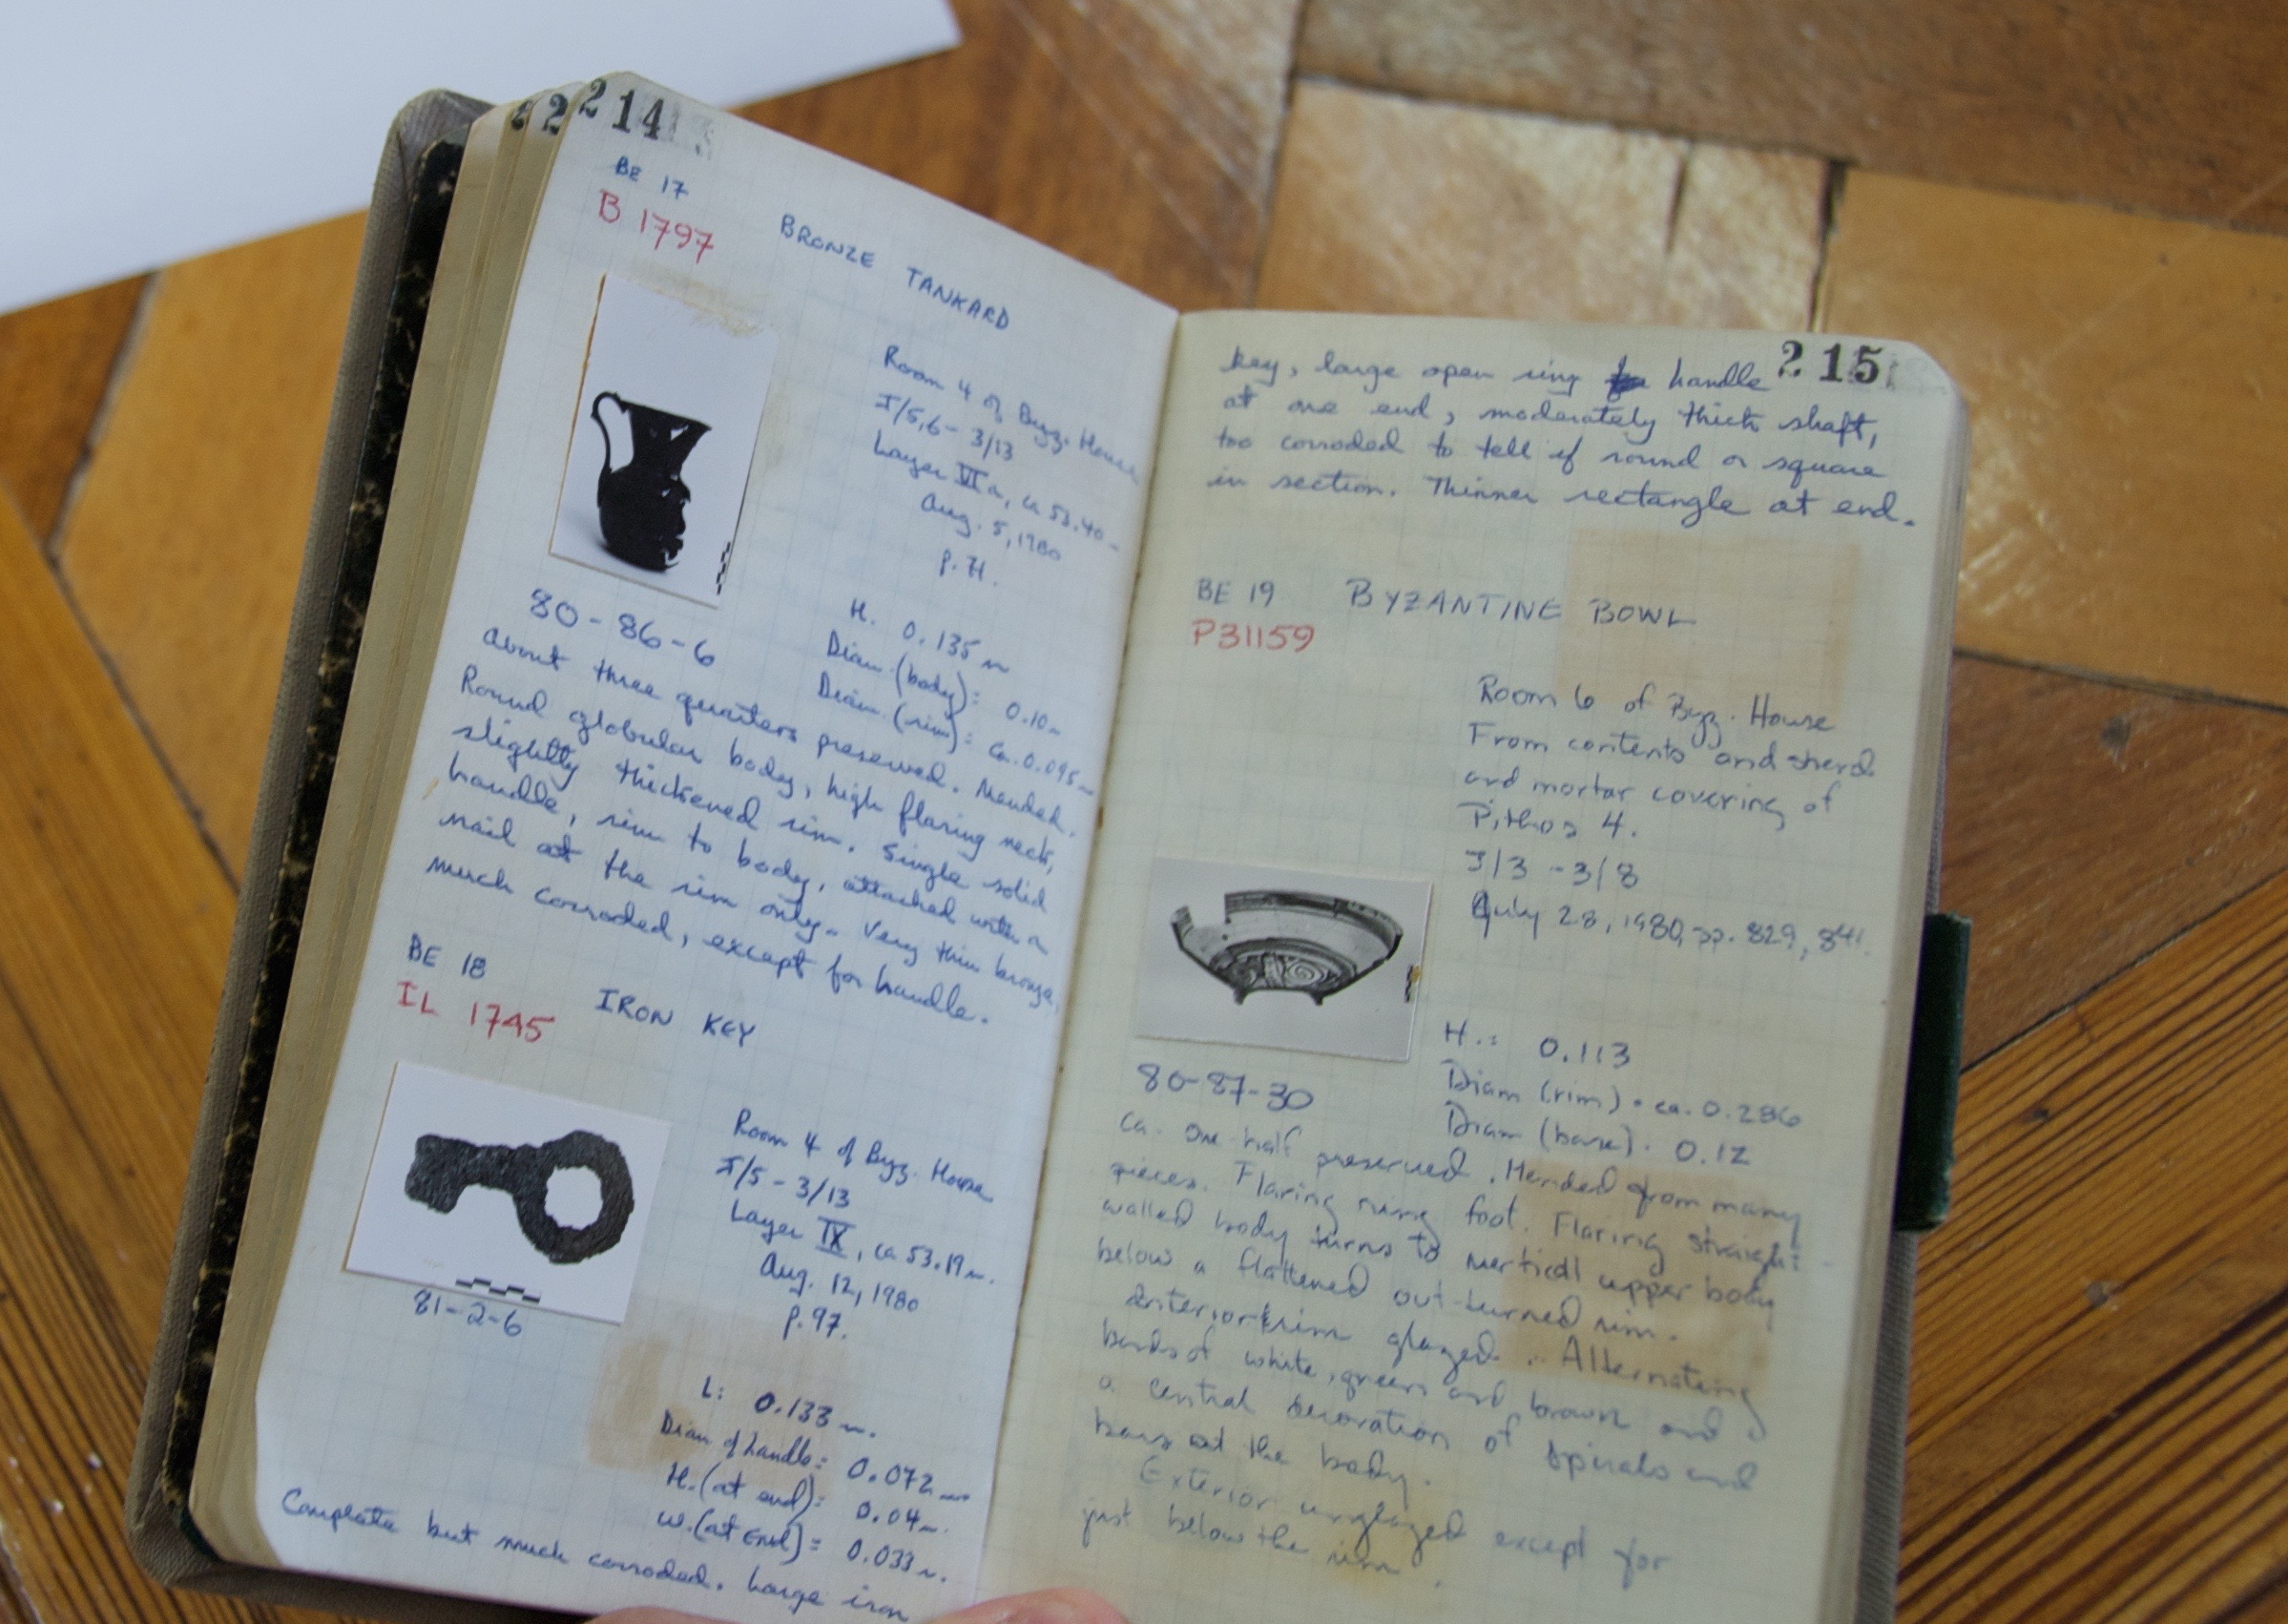 214
BE 17
B 1797
BRONZE TANKARD
Room 4 of Byz. House
I/5,6 - 3/13
Layer VI a, ca 53.40
Aug. 5, 1980
p. 71.
80-86-6
H. 0.135 m
Diam (body): 0.10 m
Diam. (rim): ca. 0.095 m
About three quarters preserved. Mended.
Round globular body, high flaring neck,
slightly thickened rim. Single solid
handle, rim to body, attached with a
nail at the rim only. Very thin bronze,
much corroded, except for handle.
BE 18
IL 1745
IRON KEY
Room 4 of Byz. House
I/5 - 3/13
Layer IX, ca 53.19 m.
Aug. 12, 1980
p. 97.
81-2-6
L: 0.133 m.
Diam of handle: 0.072 m
H. (at end): 0.04 m.
W. (at end) = 0.033 m.
Complete but much corroded. Large iron
215
key, large open ring handle
at one end, moderately thick shaft,
too corroded to tell if round or square
in section. Thinner rectangle at end.
BE 19
P31159
BYZANTINE BOWL
Room 6 of Byz. House
From contents and sherd
and mortar covering of
Pithos 4.
J/3 - 3/8
July 28, 1980, pp. 829, 841.
H.: 0.113
Diam (rim). ca. 0.286
Diam (base). 0.12
80-87-30
ca. one half preserved. Mended from many
pieces. Flaring ring foot. Flaring straight
walled body turns to vertical upper body
below a flattened out-turned rim.
Interior + rim glazed. Alternating
bands of white, green and brown and
a central decoration of spirals and
bars at the body.
Exterior unglazed except for
just below the rim.